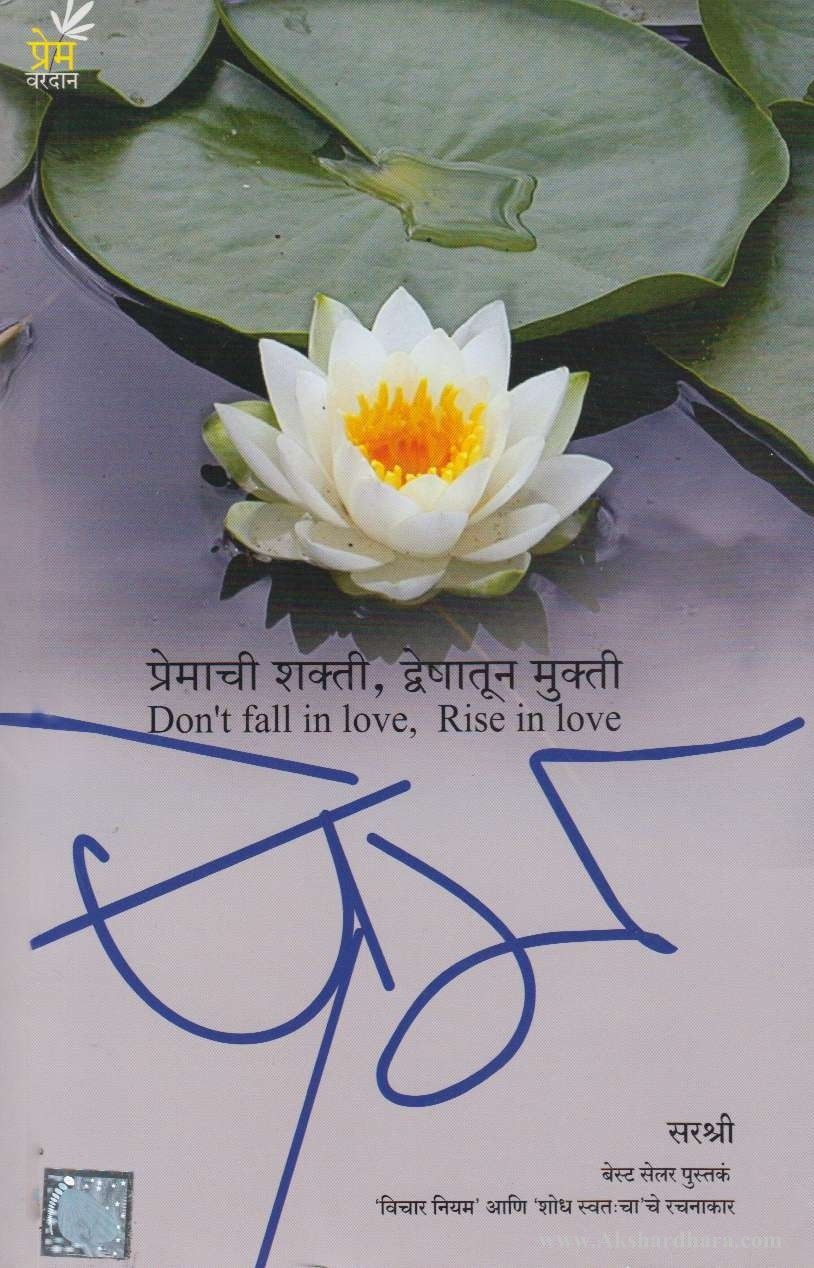 प्रेम
वरदान
प्रेमाची शक्ती, द्वेषातून मुक्ती
Don't fall in love, Rise in love
सरश्री
बेस्ट सेलर पुस्तकं
‘विचार नियम’ आणि ‘शोध स्वतःचा’चे रचनाकार
www.Akshardhara.com